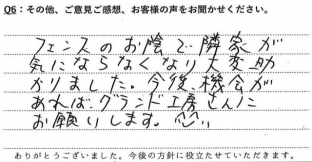 Q6：その他、ご意見ご感想、お客様の声をお聞かせください。
フェンスのお陰で隣家が
気にならなくなり大変助
かりました。今後、機会が
あれば、グランド工房さんに
お願いします。
ありがとうございました。今後の方針に役立たせていただきます。